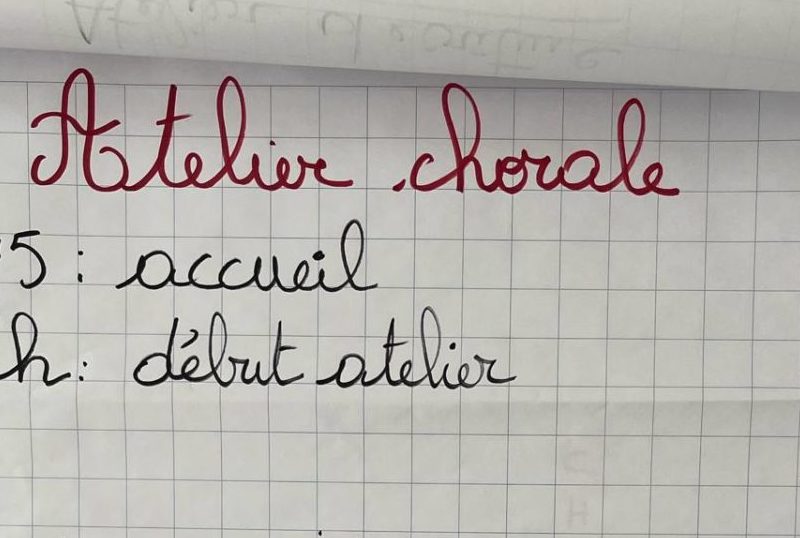 Atelier chorale
5 : accueil
h : début atelier